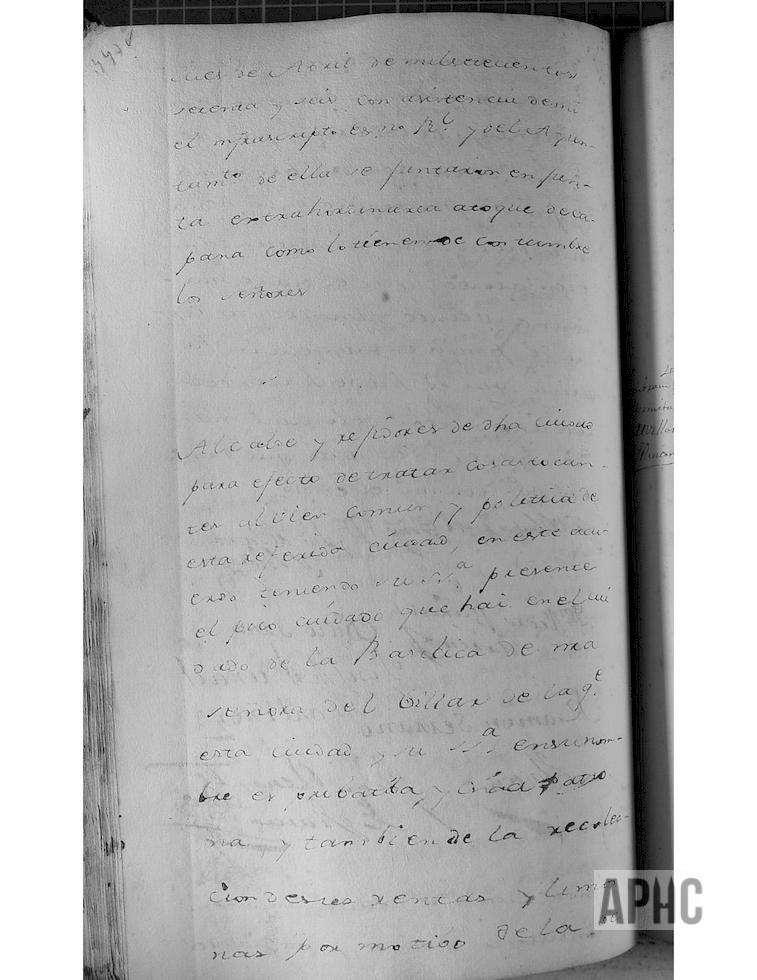 mes de Abril de mil setecientos
setenta y seis con asistencia de mi
el infrascripto esno Rl. y del Ayun-
tamto. de ella se juntaron en jun-
ta extrahordinaria a toque de ca-
pana como lo tienen de costumbre
los señores
Alcalde y rejidores de dha ciudad
para efecto de tratar cosas tocan-
tes al bien comun, y politica de
esta referida ciudad, en este acu-
erdo teniendo su Sa. presente
el poco cuidado que hai en el cui
dado de la Basilica de nra
señora del Villar de la qe.
esta ciudad y su Sa en su nom-
bre es pribatiba, y unica patro
na y tambien de la recolec-
cion de sus rentas y limos
nas por motibo de la
APHC